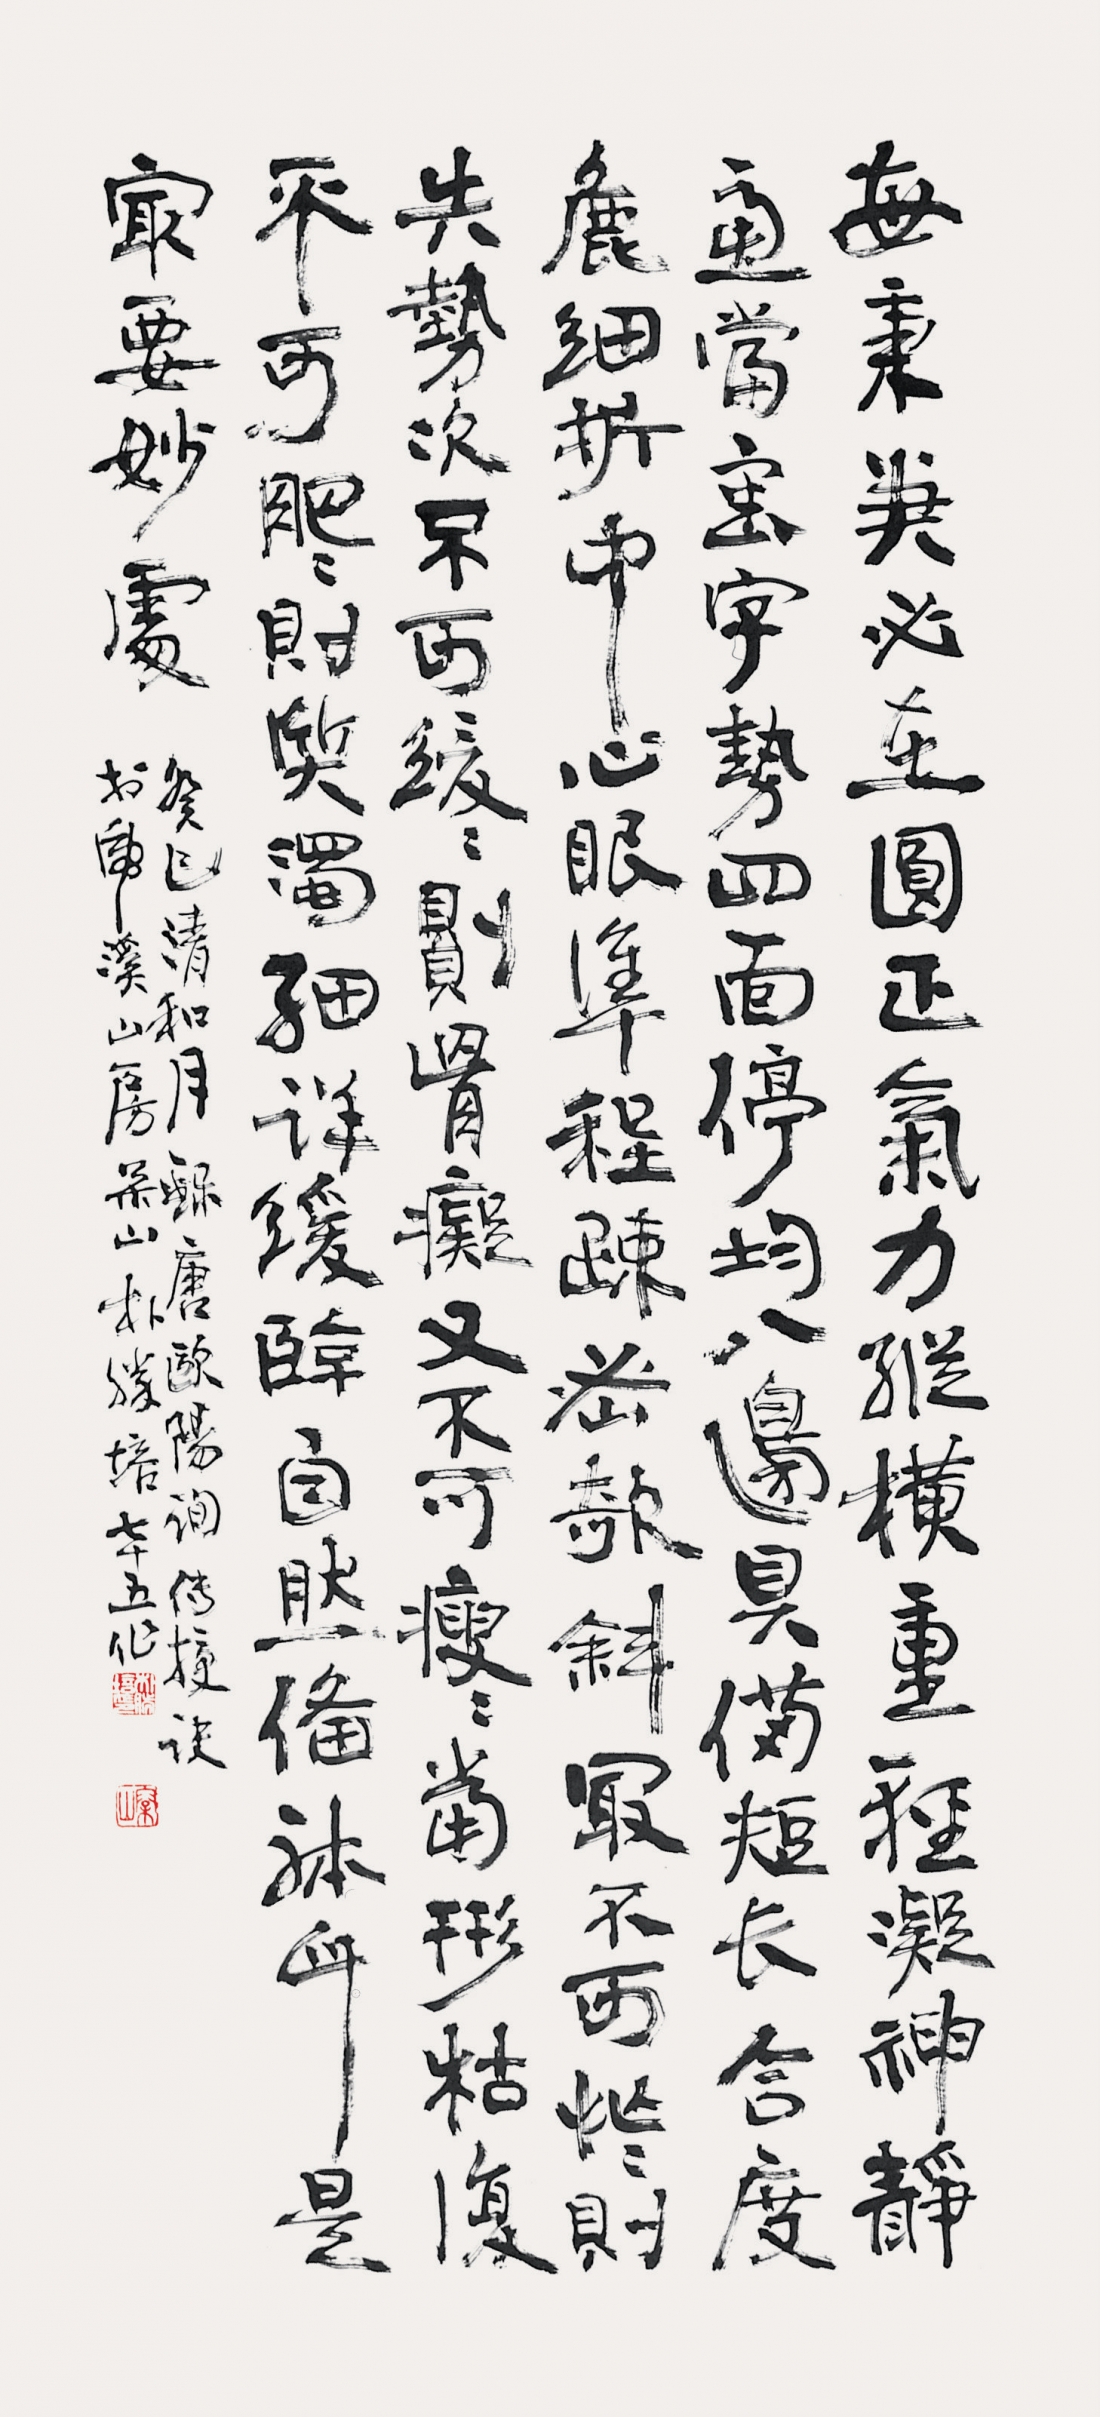 每秉筆必在圓正氣力縱橫重輕凝神靜
慮當審字勢四面停均八邊具備短長合度
麁細折中心眼準程疎密欹斜最不可忙〻則
失勢次不可緩〻則骨癡又不可瘦〻當形枯復
不可肥〻則質濁細詳緩臨自然備体此是
最要妙處
癸巳清和月錄唐歐陽詢傳授訣
於溪山房山朴勝培七十五作